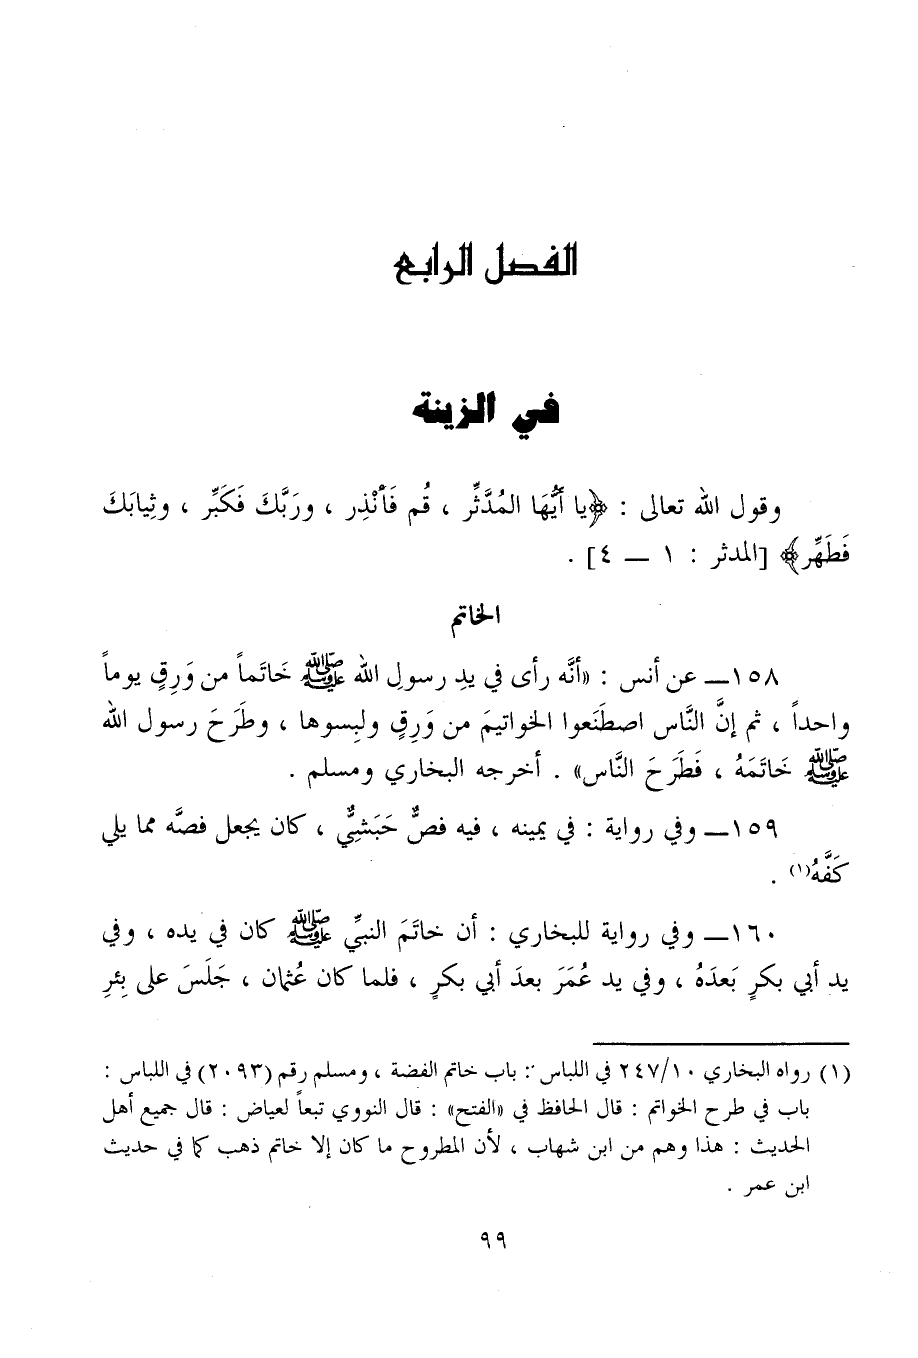 الفصل الرابع
في الزينة
وقول الله تعالى : ﴿يا أَيُّهَا المُدَّثِّر ، قُم فَأَنْذِر ، ورَبَّكَ فَكَبِّر ، وثِيابَكَ
فَطَهِّر﴾ [المدثر : ١ — ٤] .
الخاتم
١٥٨— عن أنس : «أنَّه رأى في يدِ رسولِ الله ﷺ خَاتَماً من وَرِقٍ يوماً
واحداً ، ثم إنَّ النَّاس اصطَنَعوا الخواتيمَ من وَرِقٍ ولبِسوها ، وطَرَحَ رسول الله
ﷺ خَاتَمَهُ ، فَطَرحَ النَّاس» . أخرجه البخاري ومسلم .
١٥٩— وفي رواية : في يمينه ، فيه فصٌّ حَبَشِيٌّ ، كان يجعل فصَّه مما يلي
كَفَّهُ(١) .
١٦٠— وفي رواية للبخاري : أن خاتَمَ النبيِّ ﷺ كان في يده ، وفي
يد أبي بكرٍ بَعدَهُ ، وفي يد عُمَرَ بعدَ أبي بكرٍ ، فلما كان عُثمان ، جَلَسَ على بِئرِ
(١) رواه البخاري ٢٤٧/١٠ في اللباس : باب خاتم الفضة ، ومسلم رقم (٢٠٩٣) في اللباس :
باب في طرح الخواتم : قال الحافظ في «الفتح» : قال النووي تبعاً لعياض : قال جميع أهل
الحديث : هذا وهم من ابن شهاب ، لأن المطروح ما كان إلا خاتم ذهب كما في حديث
ابن عمر .
٩٩